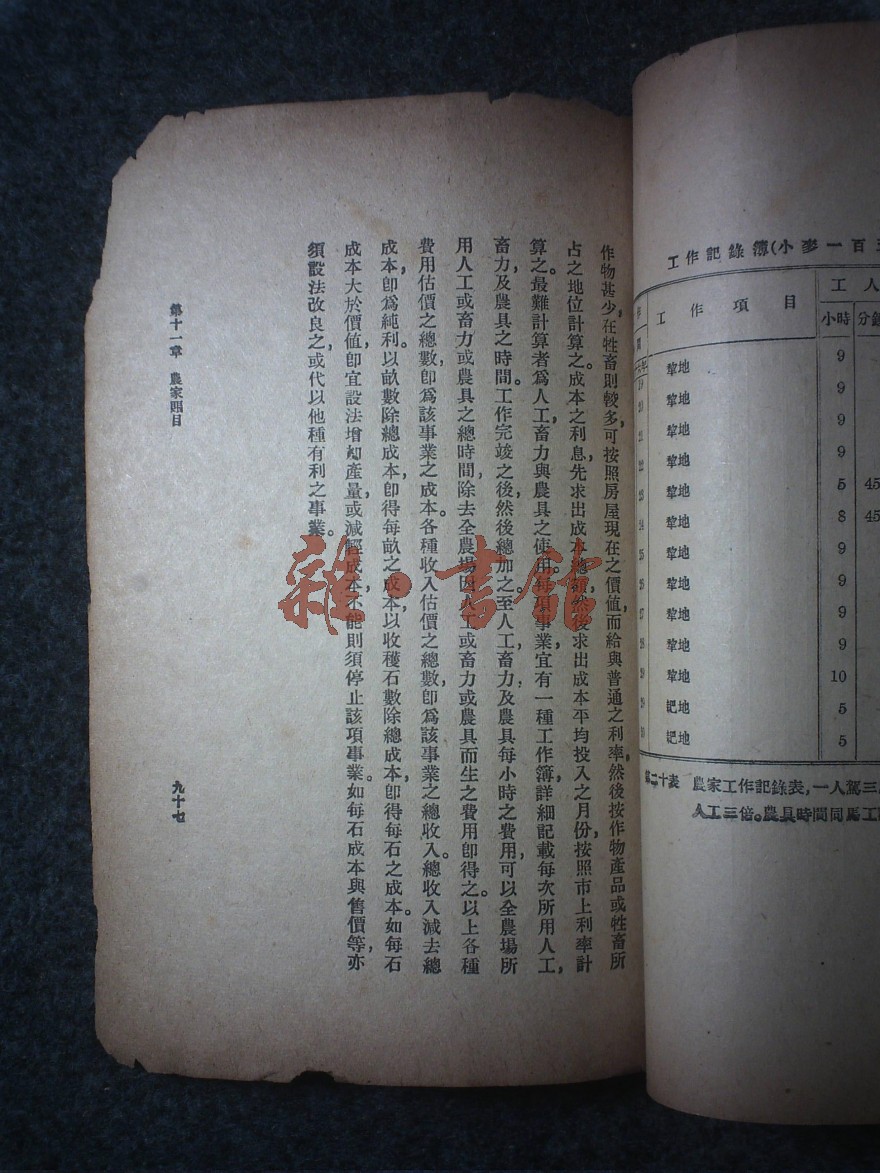 工作記錄簿(小麥一百
工作項目
工人
小時 分鐘
犂地 9
20 犂地 9
21 犂地 9
22 犂地 9
23 犂地 5 45
24 犂地 8 45
25 犂地 9
26 犂地 9
27 犂地 9
28 犂地 9
29 犂地 10
29 耙地 5
30 耙地 5
第二十表 農家工作記錄表,一人駕三
人工三倍。農具時間同馬工
作物甚少,在牲畜則較多,可按照房屋現在之價值,而給與普通之利率,然後按作物產品或牲畜所
占之地位計算之。成本之利息,先求出成本總額,然後求出成本平均投入之月份,按照市上利率計
算之。最難計算者爲人工畜力與農具之使用,每項事業,宜有一種工作簿,詳細記載每次所用人工,
畜力,及農具之時間。工作完竣之後,然後總加之。至人工畜力及農具每小時之費用,可以全農場所
用人工或畜力或農具之總時間,除去全農場因人工或畜力或農具而生之費用卽得之。以上各種
費用估價之總數,卽爲該事業之成本。各種收入估價之總數,卽爲該事業之總收入。總收入減去總
成本,卽爲純利。以畝數除總成本,卽得每畝之成本,以收穫石數除總成本,卽得每石之成本。如每石
成本大於價值,卽宜設法增加產量,或減輕成本,不能則須停止該項事業。如每石成本與售價等,亦
須設法改良之,或代以他種有利之事業。
第十一章 農家賬目
九十七
雜·書館